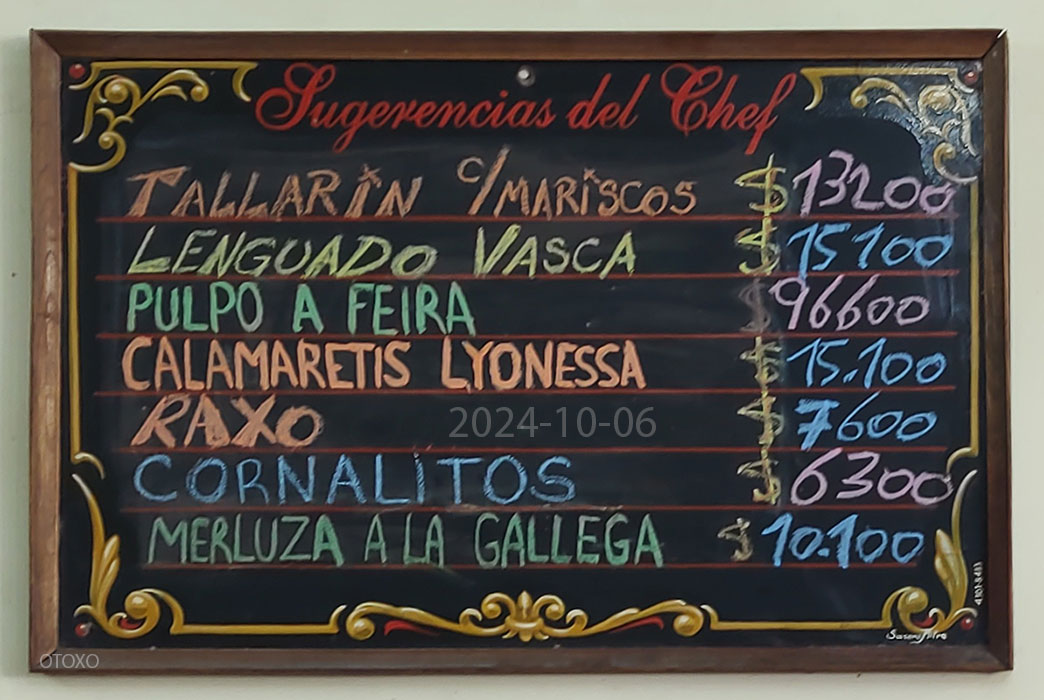 Sugerencias del Chef
TALLARIN C/MARISCOS $ 13200
LENGUADO VASCA $ 15100
PULPO A FEIRA $ 96600
CALAMARETIS LYONESSA $ 15.100
RAXO $ 7600
2024-10-06
CORNALITOS $ 6300
MERLUZA A LA GALLEGA $ 10.100
OTOXO